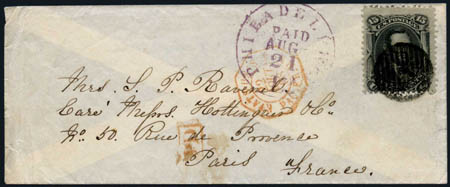 15 U.S. POSTAGE 15
PHILADEL
PAID
AUG
21
Mrs. S. P. Ravenel
Care Messrs. Hottinguer & Co.
No. 50. Rue de Provence
PD
Paris France.